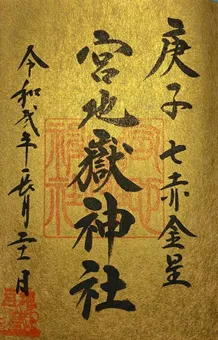 庚子 七赤金星
宮地嶽神社
令和弐年長月二十二日